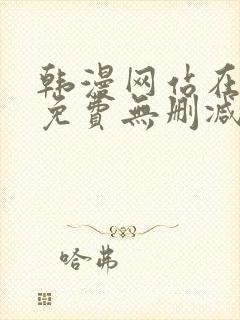 韩漫网站在
免費無删减
哈弗